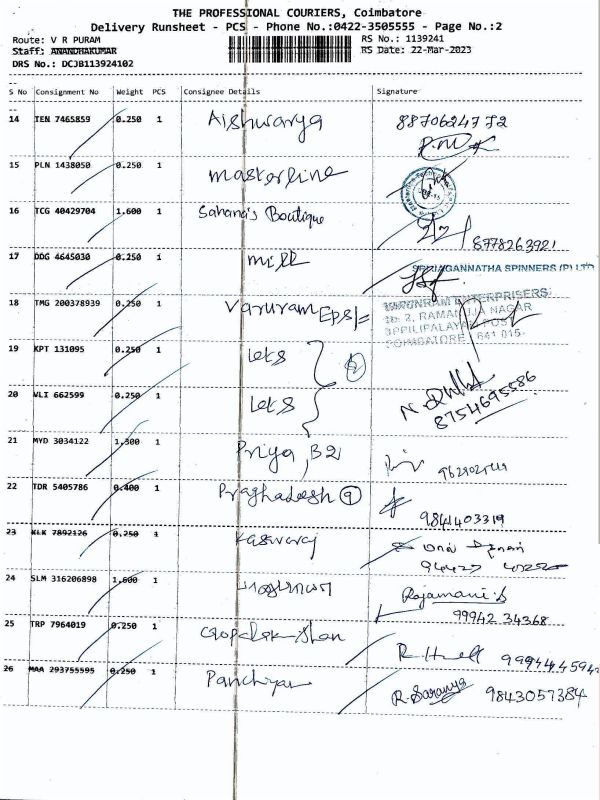 THE PROFESSIONAL COURIERS, Coimbatore
Delivery Runsheet - PCS - Phone No.:0422-3505555 - Page No.:2
Route: V R PURAM
RS No.: 1139241
Staff: ANANDHAKUMAR
RS Date: 22-Mar-2023
DRS No.: DCJB113924102
S No Consignment No Weight PCS Consignee Details Signature
14 TEN 7465859 0.250 1 Aishwarya 8870624772
15 PLN 1438050 0.250 1 Masterline
16 TCG 40429704 1.600 1 Sahana's Boutique 8778263921
17 DDG 4645030 0.250 1 Mill
SRI JAGANNATHA SPINNERS (P) LTD
18 TMG 200378939 0.250 1 Varuram Eps/=
VARUNRAM ENTERPRISERS
No: 2, RAMANUJA NAGAR
UPPILIPALAYAM POST
COIMBATORE 641 015.
19 KPT 131095 0.250 1 Lets
20 VLI 662599 0.250 1 Lets 8754695586
21 MYD 3034122 1.300 1 Priya, B2
22 TDR 5405786 0.400 1 Praghadesh 9 9841403319
23 KLK 7892126 0.250 1
24 SLM 316206898 1.600 1 Rajamani.S
99942 34368
25 TRP 7964019 0.250 1 99944 4594
26 MAA 293755595 0.250 1 R. Saranya 9843057384